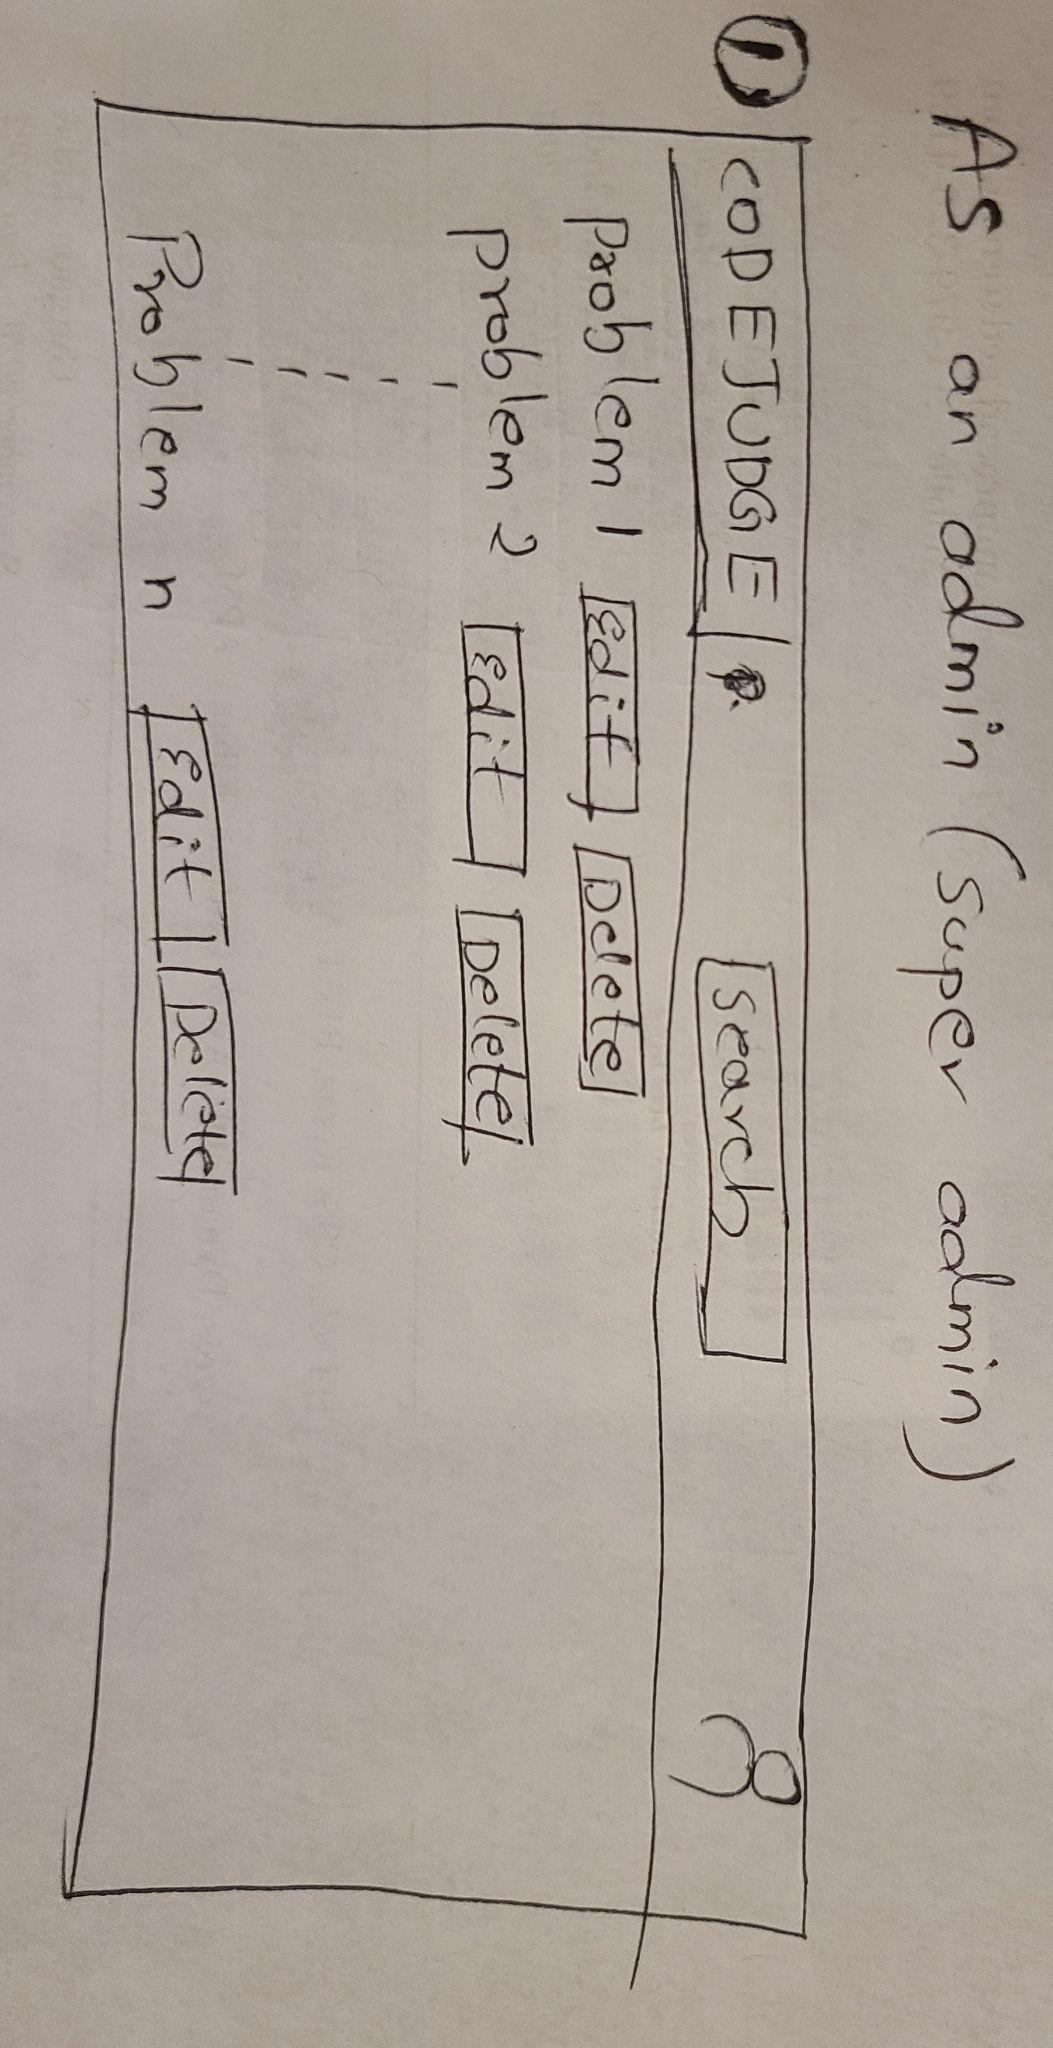 As an admin (super admin)
1
CODEJUDGE Search
Problem 1 Edit Delete
Problem 2 Edit Delete
Problem n Edit Delete